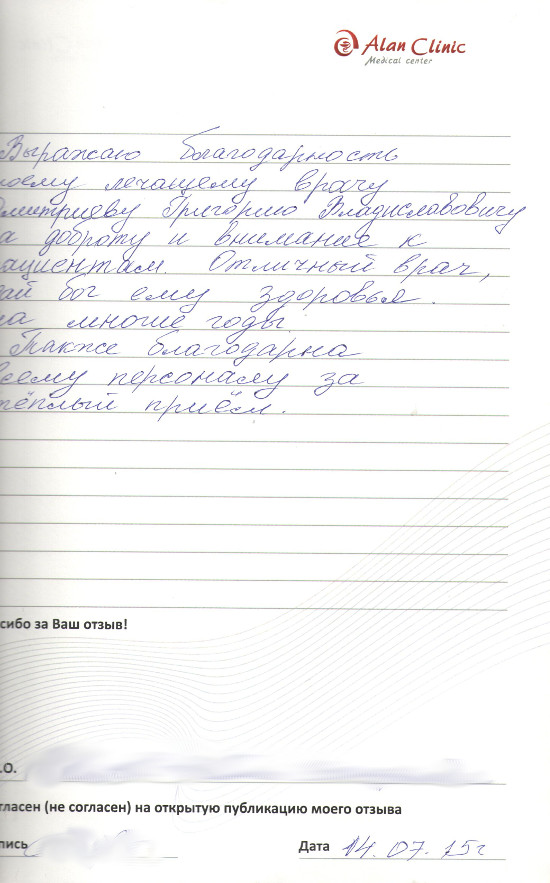 Alan Clinic
Medical center
Выражаю благодарность
моему лечащему врачу
Дмитриеву Григорию Владиславовичу
за доброту и внимание к
ациентам. Отличный врач,
дай бог ему здоровья.
на многие годы.
Также благодарна
всему персоналу за
тёплый приём.
сибо за Ваш отзыв!
.О.
гласен (не согласен) на открытую публикацию моего отзыва
пись
Дата 14.07.15г